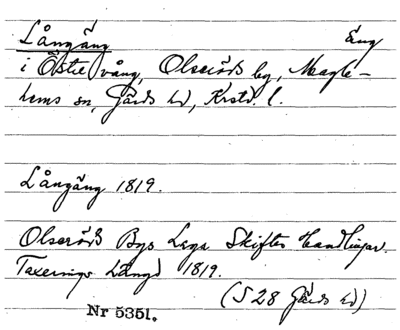 Långäng Äng
i Östre vång, Olseröds by, Magle-
hems sn, Gärds hd, Krstd. l.
Långäng 1819.
Olseröds Bys Laga Skiftes Handlingar.
Taxerings Längd 1819.
(S 28 Gärds hd)
Nr 5351.